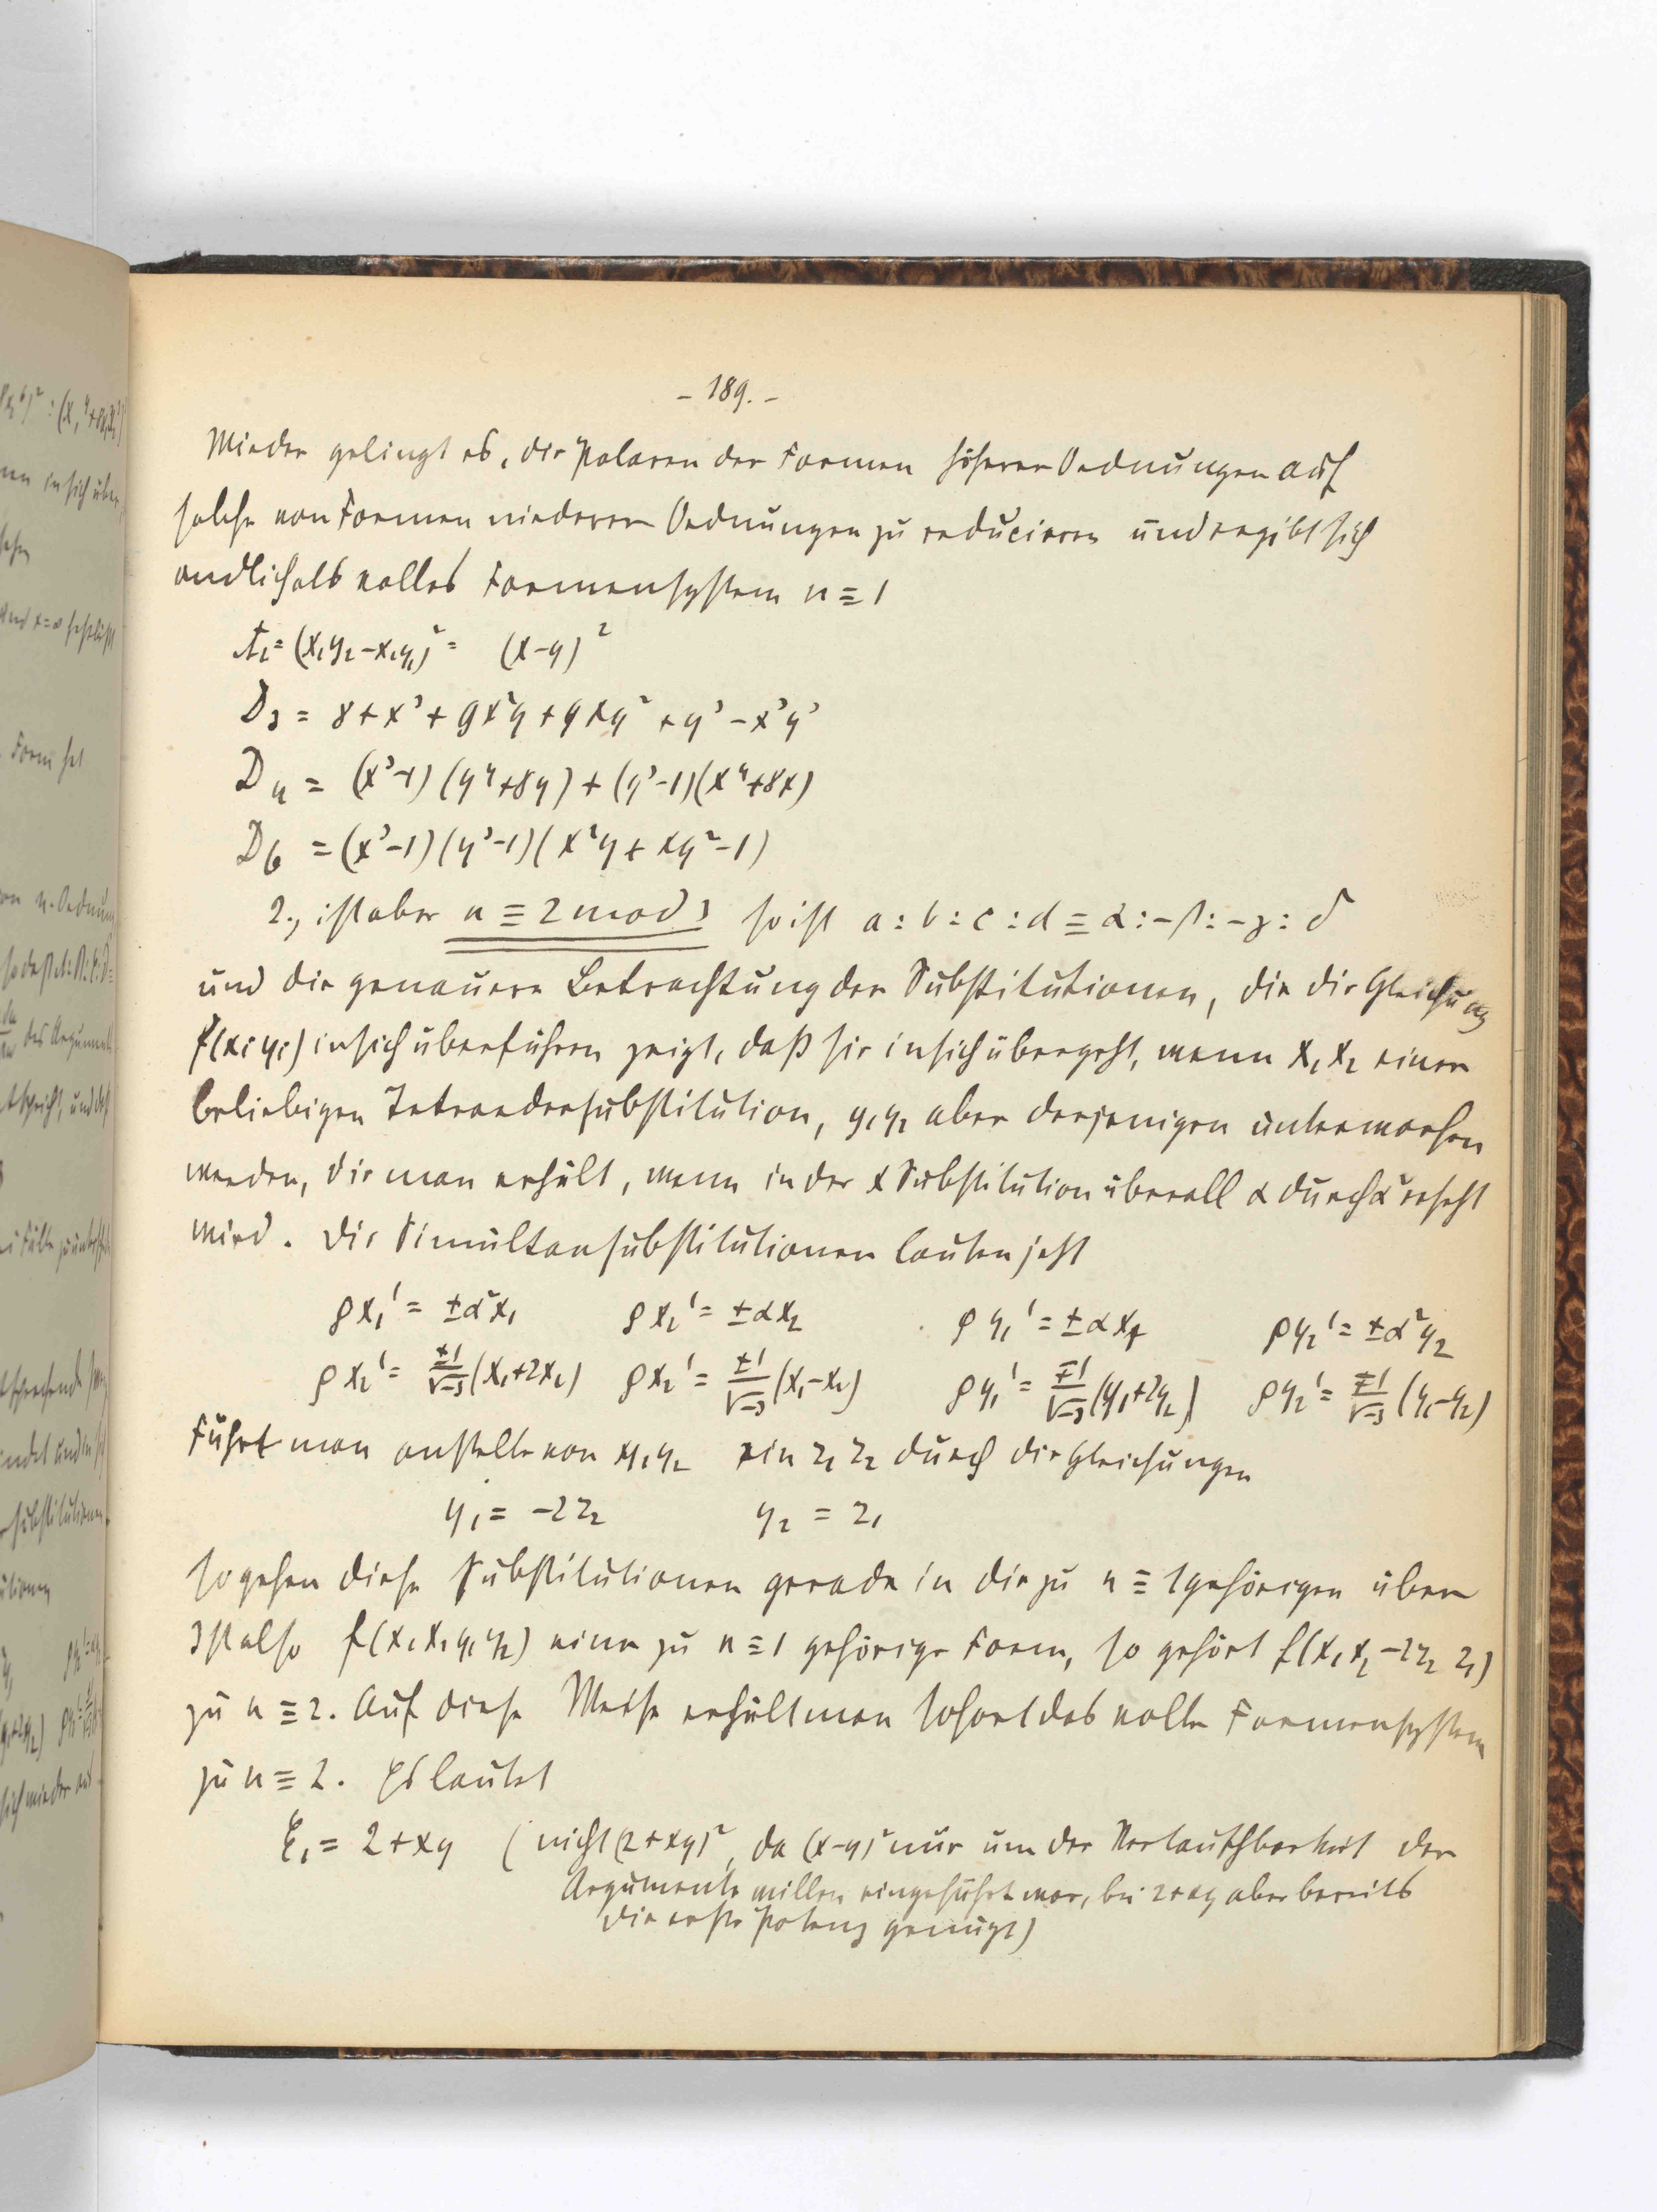 - 189. -
Wieder gelingt es, die Polaren der Formen höherer Ordnungen auf
solche von Formen niederer Ordnungen zu reducieren und ergibt sich
endlich als volles Formensystem n ≡ 1
A₂ = (x₁y₂-x₂y₁)² = (x-y)²
D₃ = 8+x³+9x²y+9xy²+y³-x³y³
D₄ = (x³-1)(y⁴+8y)+(y³-1)(x⁴+8x)
D₆ = (x³-1)(y³-1)(x²y+xy²-1)
2., ist aber n ≡ 2 mod 3 so ist a:b:c:d = α:-β:-γ:δ
und die genauere Betrachtung der Substitutionen, die die Gleichung
f(xᵢyᵢ) in sich überführen zeigt, daß sie in sich übergeht, wenn x₁x₂ einer
beliebigen Tetraedersubstitution, y₁y₂ aber derjenigen unterworfen
werden, die man erhält, wenn in der x Substitution überall α durch α² ersetzt
wird. Die Simultansubstitutionen lauten jetzt
ρx₁' = ±α²x₁ ρx₂' = ±αx₂ ρy₁' = ±αx₁ ρy₂' = ±α²y₂
ρx₂' = ±1/√-3 (x₁+2x₂) ρx₂' = ±1/√-3 (x₁-x₂) ρy₁' = ∓1/√-3 (y₁+2y₂) ρy₂' = ∓1/√-3 (y₁-y₂)
Führt man anstelle von y₁y₂ ein z₁ z₂ durch die Gleichungen
y₁ = -2z₂ y₂ = z₁
so gehen diese Substitutionen gerade in die zu n ≡ 1 gehörigen über
Ist also f(x₁x₂y₁y₂) eine zu n ≡ 1 gehörige Form, so gehört f(x₁x₂ -2z₂ z₁)
zu n ≡ 2. Auf diese Weise erhält man sofort das volle Formensystem
zu n ≡ 2. Es lautet
E₁ = 2+xy (nicht (2+xy)², da (x-y)² nur um der Vertauschbarkeit der
Argumente willen eingeführt war, bei 2+xy aber bereits
die erste Potenz genügt)